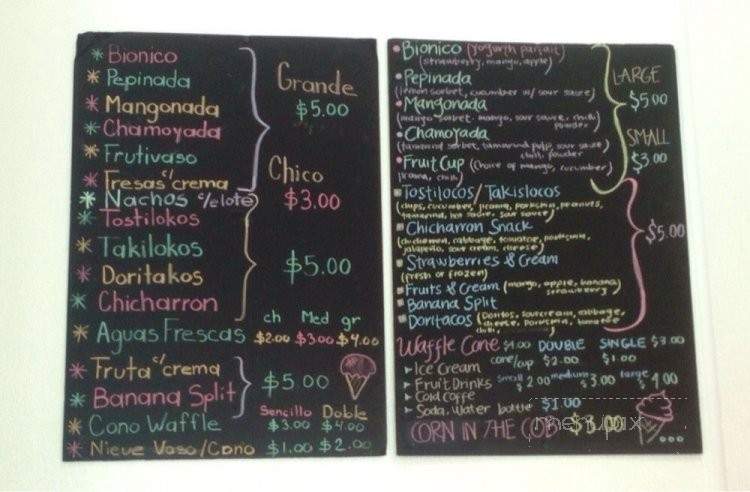 Bionico
Pepinada
Mangonada
Chamoyada
Frutivaso
Fresas c/ crema
Grande
$5.00
Chico
$3.00
Nachos c/elote
Tostilokos
Takilokos
Doritakos
Chicharron
$5.00
ch Med gr
Aguas Frescas $2.00 $3.00 $4.00
Fruta c/ crema
Banana Split
$5.00
Sencillo Doble
Cono Waffle $3.00 $4.00
Nieve Vaso/Cono $1.00 $2.00
Bionico (yogurth parfait)
(strawberry, mango, apple)
Pepinada
(lemon sorbet, cucumber w/ sour sauce)
Mangonada
(mango sorbet, mango, sour sauce, chili
powder)
Chamoyada
(tamarind sorbet, tamarind pulp, sour sauce
chili, powder
Fruit Cup (choice of mango, cucumber
jicama, chili)
LARGE
$5.00
SMALL
$3.00
Tostilocos/Takislocos
(chips, cucumber, jicama, porkskin, peanuts,
tamarind, hot sauce, sour sauce)
Chicharron Snack
cabbage, tomatoe, porkskin,
jalapeño, sour cream, cheese)
Strawberries & Cream
(fresh or frozen)
Fruits & Cream (mango, apple, banana
strawberry)
Banana Split
Doritacos (Doritos, sourcream, cabbage,
cheese, porkskin, tomatoe
chili,
$5.00
Waffle Cone $4.00 DOUBLE SINGLE $3.00
Ice Cream cone/cup $2.00 $1.00
Fruit Drinks small $2.00 medium $3.00 large $4.00
Cold Coffe
Soda, Water bottle $1.00
CORN IN THE COB $3.00
menupix